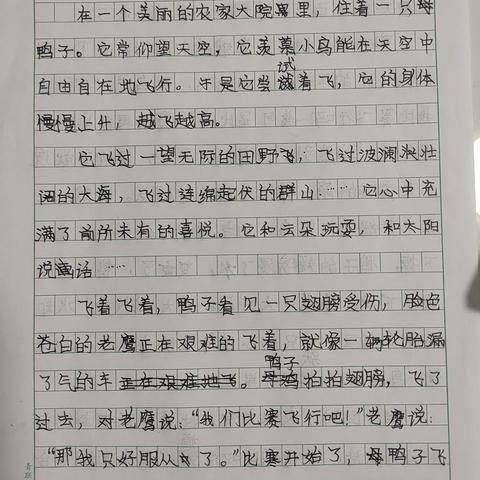 在一个美丽的农家大院里，住着一只母
鸭子。它常仰望天空，它羡慕小鸟能在天空中
自由自在地飞行。于是它尝试着飞，它的身体
慢慢上升，越飞越高。
它飞过一望无际的田野，飞过波澜壮
阔的大海，飞过连绵起伏的群山……它心中充
满了前所未有的喜悦。它和云朵玩耍，和太阳
说话……
飞着飞着，鸭子看见一只翅膀受伤，脸色
苍白的老鹰正在艰难的飞着，就像一辆轮胎漏
了气的车。鸭子拍拍翅膀，飞了
过去，对老鹰说：“我们比赛飞行吧！”老鹰说：
“那我只好服从了。”比赛开始了，鸭子飞